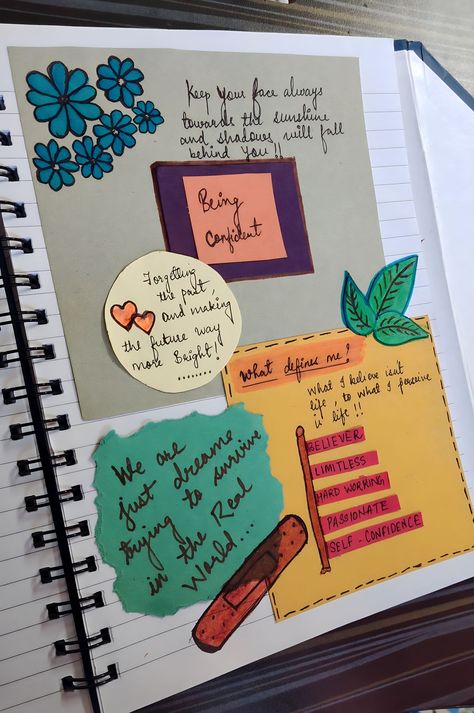 Keep your face always
towards the sunshine
and shadows will fall
behind You!!
Being
Confident
Forgetting
the past,
and making
the future way
more Bright!
........
What defines me?
What I believe isn't
life, to what I perceive
is life!!
BELIEVER
LIMITLESS
HARD WORKING
PASSIONATE
SELF-CONFIDENCE
We are
just dreams
trying to survive
in the Real
World...